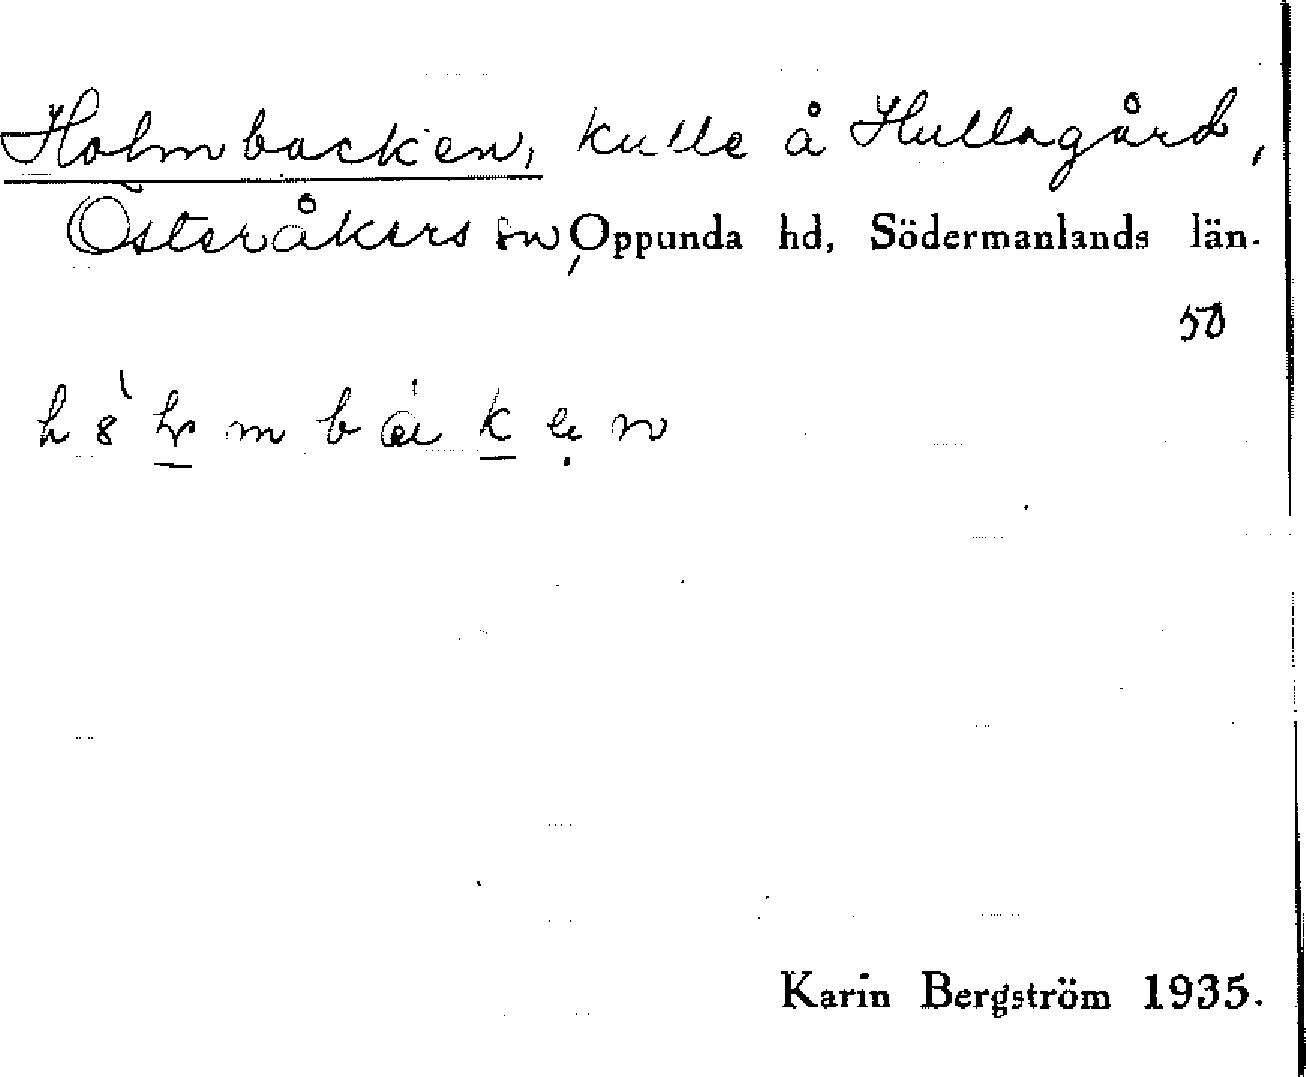 Holmbacken, kulle å Hullagård,
Österåkers sn, Oppunda hd, Södermanlands län.
50
Karin Bergström 1935.